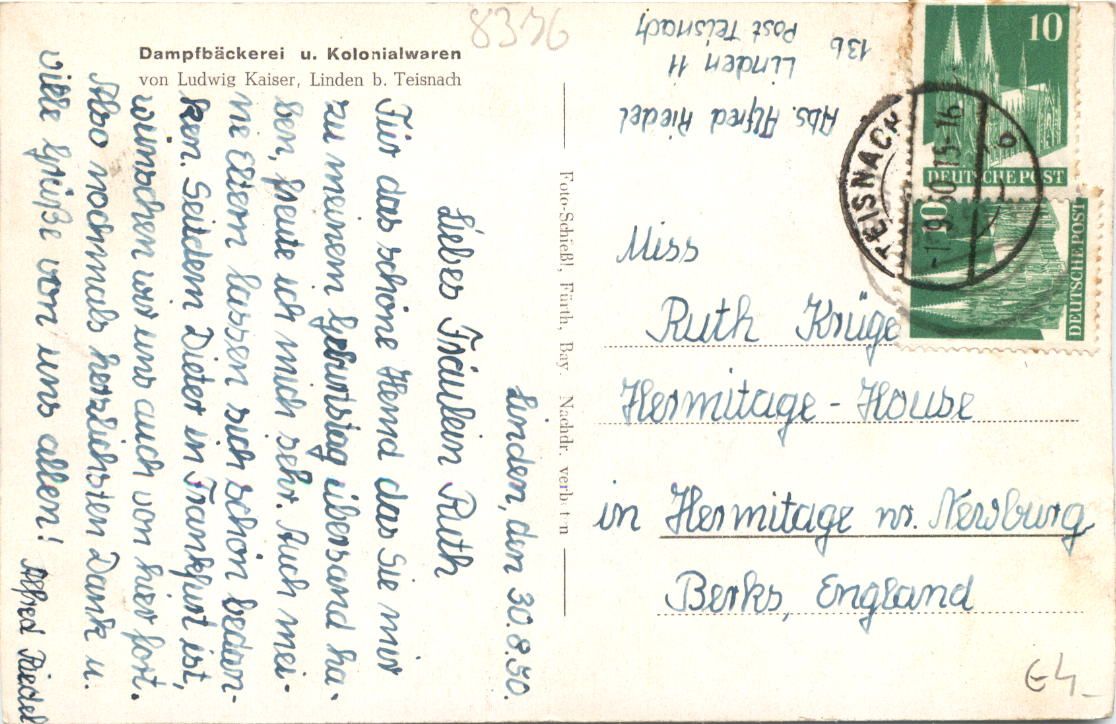 8376
Dampfbäckerei u. Kolonialwaren
von Ludwig Kaiser, Linden b. Teisnach
Linden, den 30.8.50.
Liebes Fräulein Ruth
Für das schöne Hemd das Sie mir
zu meinem Geburtstag übersand ha-
ben, freute ich mich sehr. Auch mei-
ne Eltern lassen sich schön bedan-
ken. Seitdem Dieter in Frankfurt ist,
wünschen wir uns auch von hier fort.
Also nochmals herzlichsten Dank u.
viele Grüße von uns allen!
Alfred Riedel
Foto-Schießl, Fürth, Bay. Nachdr. verboten
Abs. Alfred Riedel
Linden 11
13b Post Teisnach
10
DEUTSCHE POST
10
DEUTSCHE POST
TEISNACH
-1.9.50.15-16
b
Miss
Ruth Krüge
Hermitage-House
in Hermitage nr. Newburg
Berks, England
E4.-